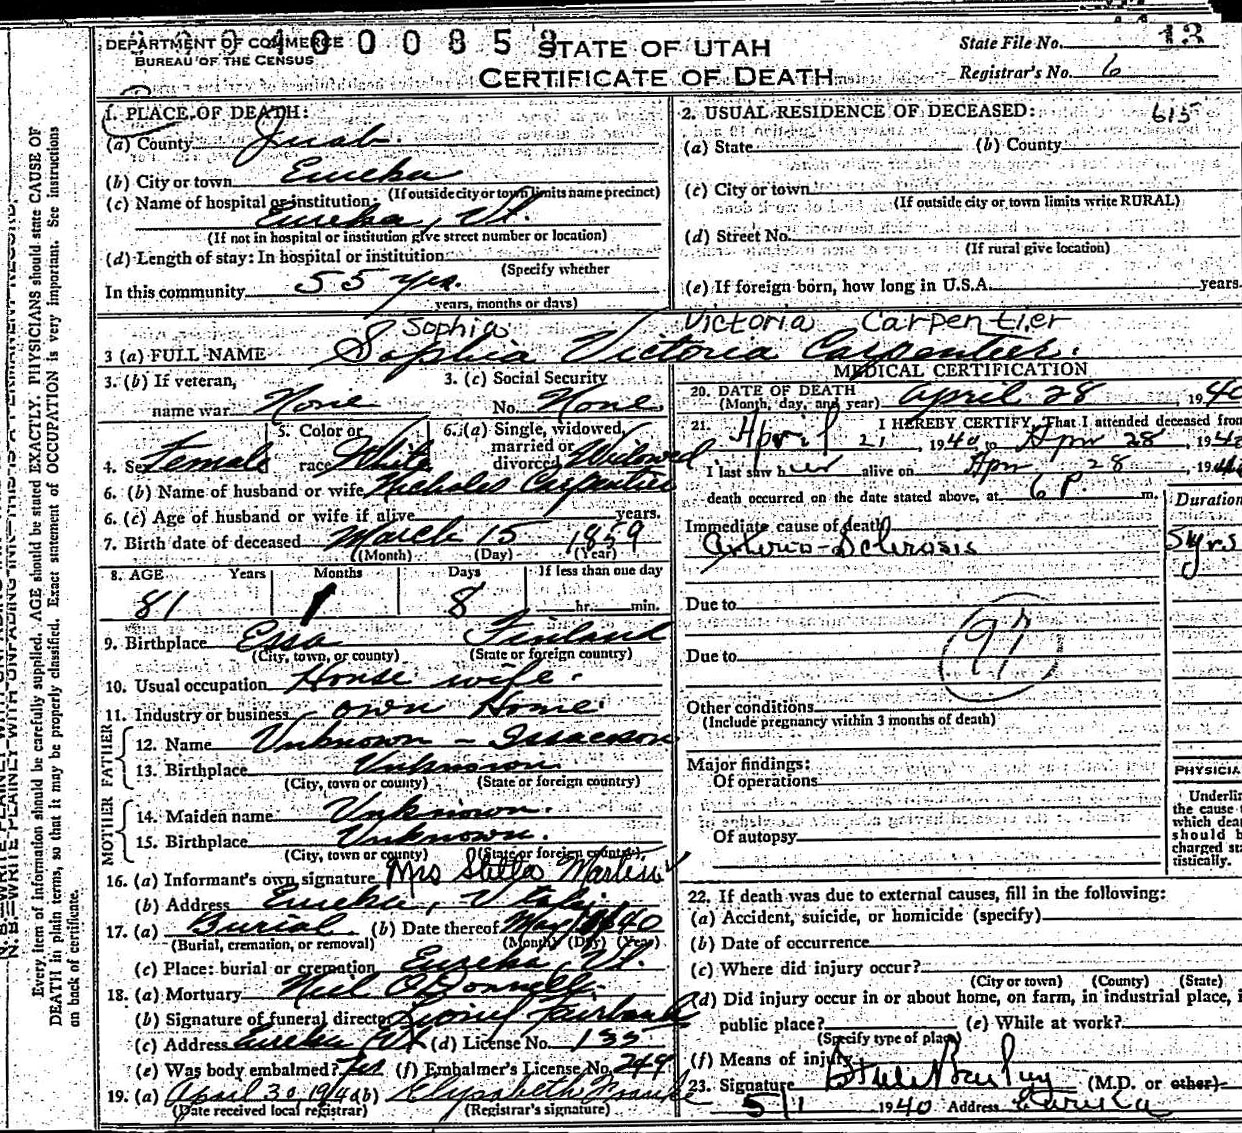 DEPARTMENT OF COMMERCE
BUREAU OF THE CENSUS
STATE OF UTAH
CERTIFICATE OF DEATH
State File No. 13
Registrar's No. 6
1. PLACE OF DEATH:
(a) County Juab
(b) City or town Eureka
(If outside city or town limits name precinct)
(c) Name of hospital or institution:
Eureka, Ut.
(If not in hospital or institution give street number or location)
(d) Length of stay: In hospital or institution
(Specify whether
In this community 55 yrs.
years, months or days)
2. USUAL RESIDENCE OF DECEASED: 615
(a) State (b) County
(c) City or town
(If outside city or town limits write RURAL)
(d) Street No.
(If rural give location)
(e) If foreign born, how long in U.S.A. years
Sophia Victoria Carpentier
3 (a) FULL NAME Sophia Victoria Carpentier.
3. (b) If veteran,
name war None
3. (c) Social Security
No. None
4. Sex Female
5. Color or
race White
6. (a) Single, widowed,
married or
divorced Widowed
6. (b) Name of husband or wife Nicholes Carpentier
6. (c) Age of husband or wife if alive years.
7. Birth date of deceased March 15 1859
(Month) (Day) (Year)
8. AGE Years Months Days If less than one day
81 1 8 hr. min.
9. Birthplace Essa Finland
(City, town, or county) (State or foreign country)
10. Usual occupation House wife.
11. Industry or business own Home
FATHER
12. Name Unknown - Issacson
13. Birthplace Unknown
(City, town or county) (State or foreign country)
MOTHER
14. Maiden name Unknown.
15. Birthplace Unknown.
(City, town or county) (State or foreign country)
16. (a) Informant's own signature Mrs Stella
(b) Address Eureka, Utah
17. (a) Burial (b) Date thereof May 1 1940
(Burial, cremation, or removal) (Month) (Day) (Year)
(c) Place: burial or cremation Eureka, Ut.
18. (a) Mortuary Neil O'Donnell
(b) Signature of funeral director Lionel Fairbanks
(c) Address Eureka Ut (d) License No. 135
(e) Was body embalmed? Yes (f) Embalmer's License No. 249
19. (a) April 30, 1940 (b) Elysabeth Franke
(Date received local registrar) (Registrar's signature)
MEDICAL CERTIFICATION
20. DATE OF DEATH
(Month, day, and year) April 28 1940
21. I HEREBY CERTIFY, That I attended deceased from
April 21, 1940 to Apr 28, 1940
I last saw her alive on Apr 28, 1940
death occurred on the date stated above, at 6 P. m.
Duration
Immediate cause of death
Arterio-Sclerosis 5 yrs
Due to
97
Due to
Other conditions
(Include pregnancy within 3 months of death)
Major findings:
Of operations
Of autopsy
PHYSICIA
Underlin
the cause
which dea
should b
charged sta
tistically.
22. If death was due to external causes, fill in the following:
(a) Accident, suicide, or homicide (specify)
(b) Date of occurrence
(c) Where did injury occur?
(City or town) (County) (State)
(d) Did injury occur in or about home, on farm, in industrial place, i
public place? (e) While at work?
(Specify type of place)
(f) Means of injury
23. Signature (M.D. or other)
5/1 1940 Address Eureka
Every item of information should be carefully supplied. AGE should be stated EXACTLY. PHYSICIANS should state CAUSE OF
DEATH in plain terms, so that it may be properly classified. Exact statement of OCCUPATION is very important. See instructions
on back of certificate.